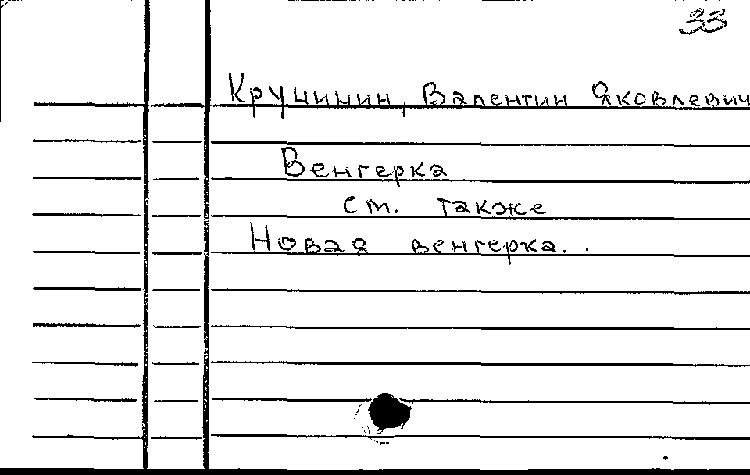 33
Кручинин, Валентин Яковлевич
Венгерка
см. также
Новая венгерка..